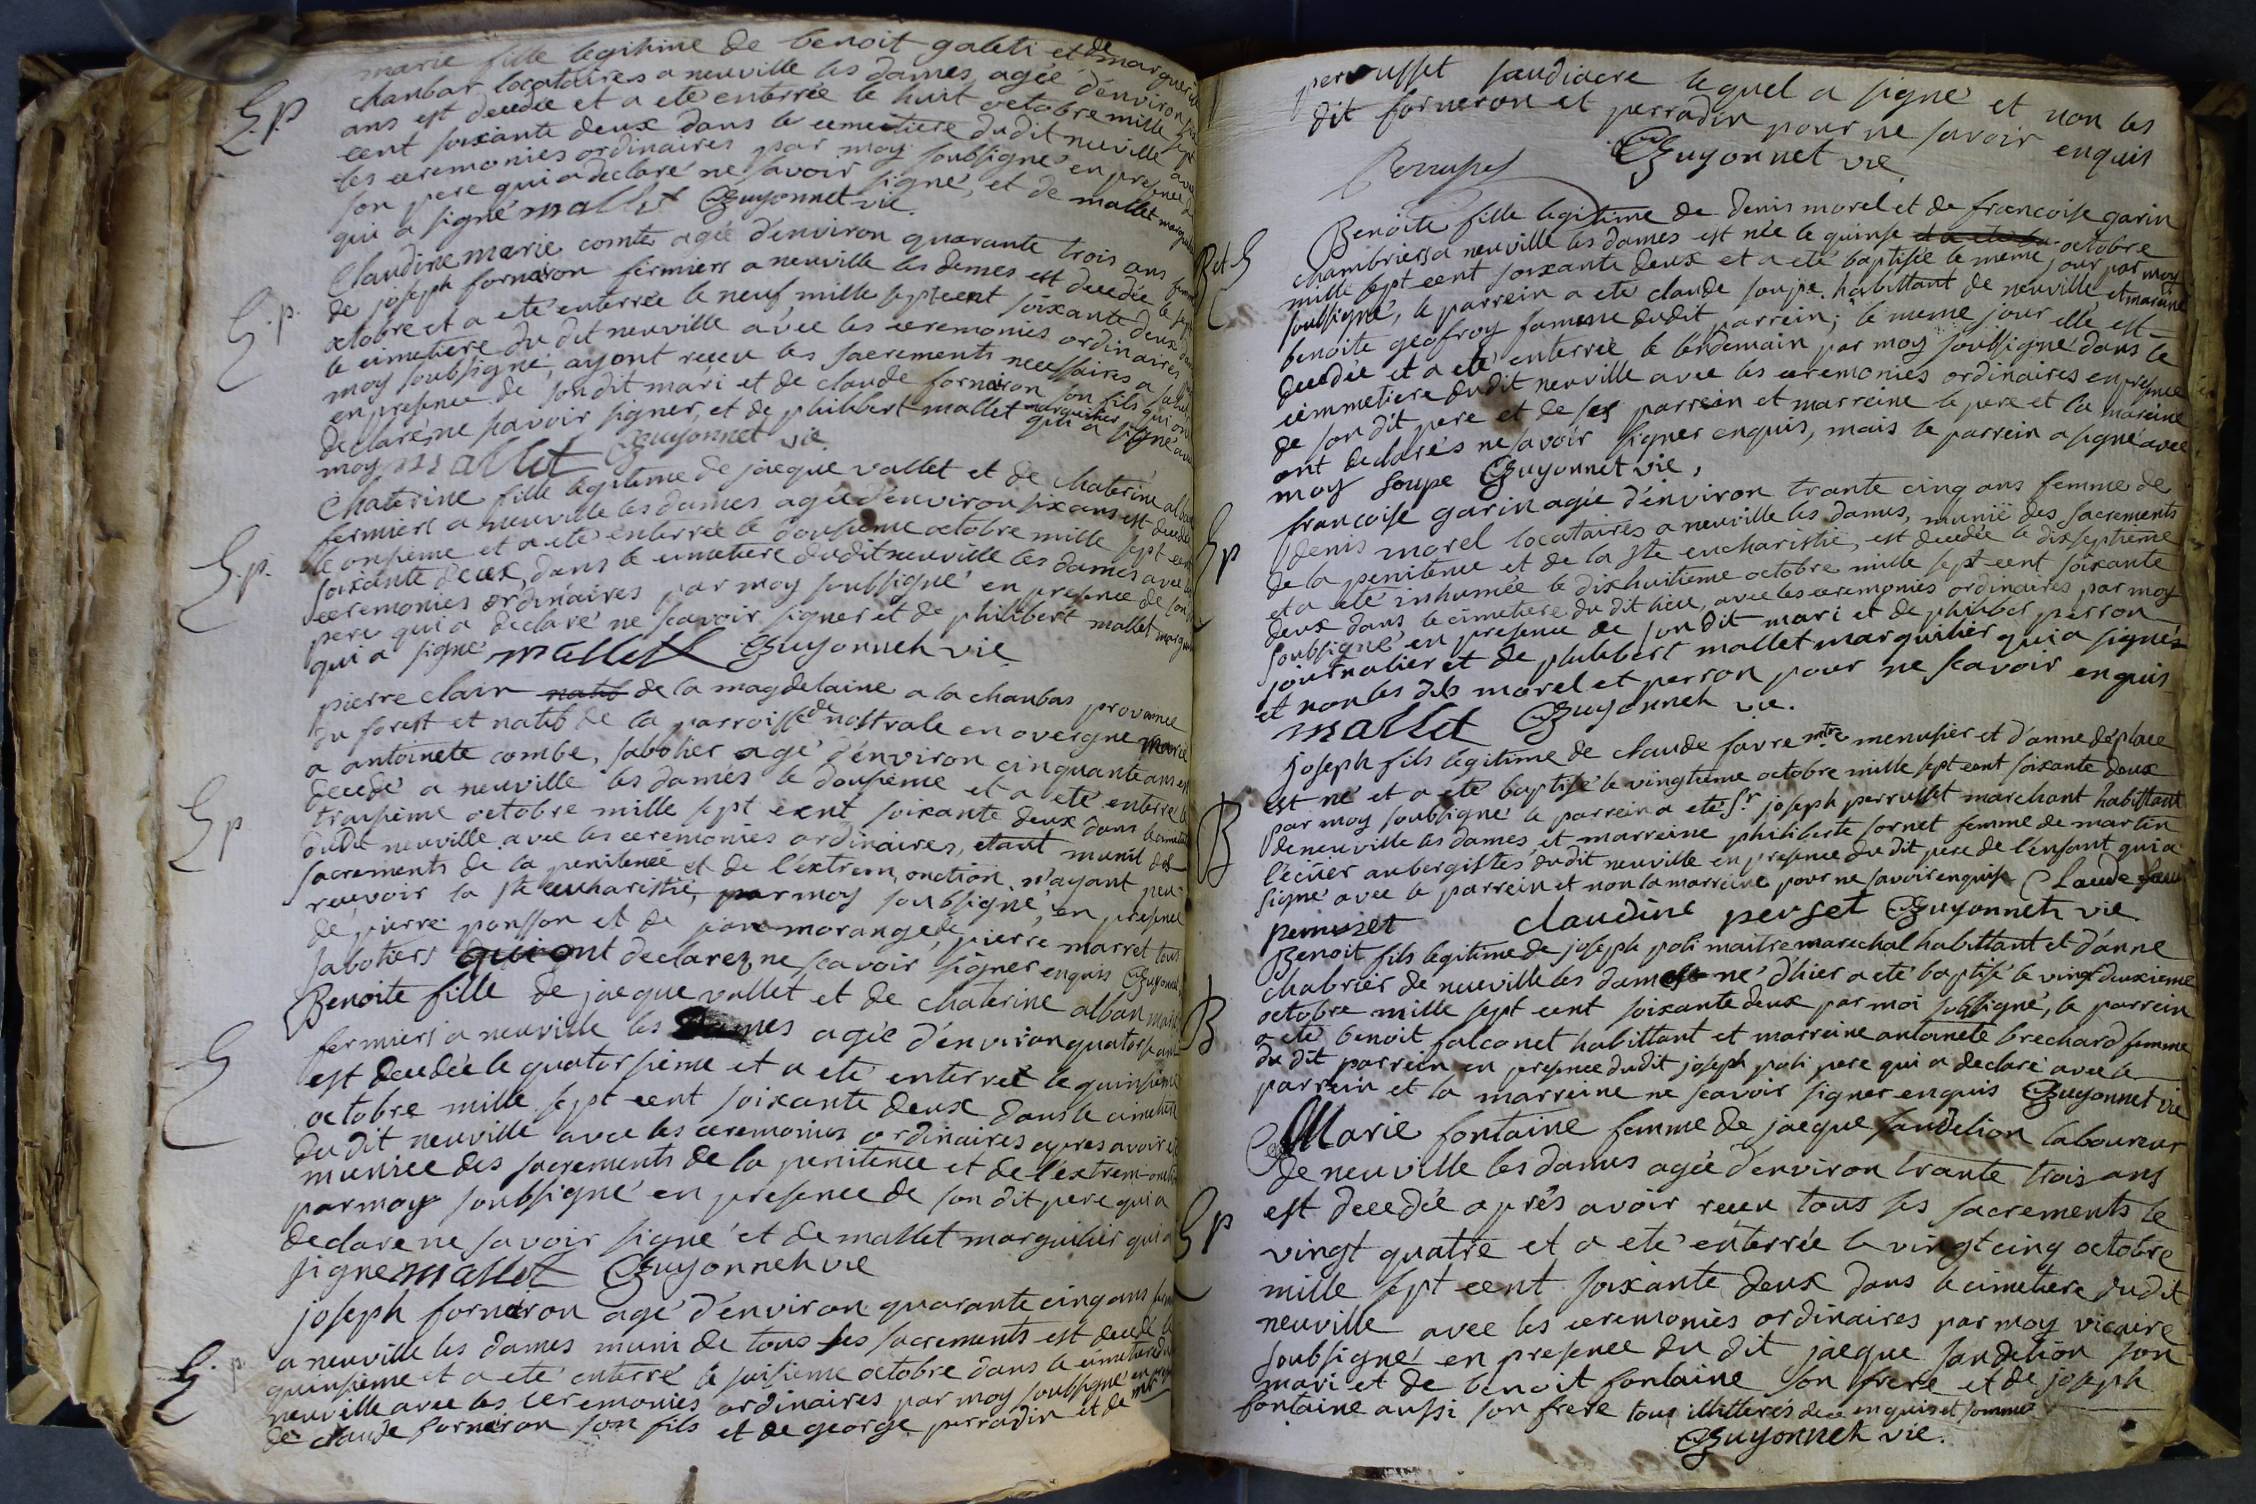 marie fille legitime de benoit galeti et de marguerite
chanbar locataires a neuville les dames agée d'environ
ans est decedée et a eté enterrée le huit octobre mille sept
cent soixante deux dans le cemetiere du dit neuville avec
les ceremonies ordinaires par moy soubsigné en presence de
son pere qui a declaré ne savoir signé, et de mallet marguilier
qui a signé mallet Guyonnet vic.
E.p
Claudine marie comte agée d'environ quarante trois ans femme
de joseph forneron fermiers a neuville les dames est decedée le sept
octobre et a eté enterrée le neuf mille sept cent soixante deux dans
le cimetiere du dit neuville avec les ceremonies ordinaires par
moy soubsigné, ayant receu les sacrements necessaires a salut
en presence de son dit mari et de claude forneron son fils qui ont
declaré ne scavoir signer, et de philibert mallet marguilier qui a signé avec
moy mallet Guyonnet vic
E.p.
Chaterine fille legiteme de jacque vallet et de chaterine alban
fermiers a neuville les dames agée d'environ six ans est decedée
le onsieme et a eté enterrée le dousieme octobre mille sept cent
soixante deux, dans le cimetiere du dit neuville les dames avec les
ceremonies ordinaires par moy soubsigné en presence de son
pere qui a declaré ne scavoir signer et de philibert mallet marguilier
qui a signé mallet Guyonneh vic
E.p.
pierre clair natib de la magdelaine a la chanbas provance
du forest et natib de la parroisse de nostrale en overgne marié
a antoinete combe, sabotier agé d'environ cinquante ans est
decedé a neuville les dames le dousieme et a eté enterré le
traisieme octobre mille sept cent soixante deux dans le cimetiere
du dit neuville avec les ceremonies ordinaires, etant munit des
sacrements de la penitence et de l'extrem onction n'ayant peu
recevoir la ste eucharistie, par moy soubsigné, en presence
de pierre ponsson et de jan morange, de pierre marret tous
sabotiers qui ont declarez ne scavoir signer enquis Guyonnet
Ep
Benoite fille de jacque vallet et de chaterine alban mariés
fermiers a neuville les dames agée d'environ quatorse ans
est decedée le quatorsieme et a eté enterreé le quinsieme
octobre mille sept cent soixante deux dans le cimetiere
du dit neuville avec les ceremonies ordinaires apres avoir eté
muniee des sacrements de la penitence et de l'extrem-onction
par moy soubsigné en presence de son dit pere qui a
declare ne savoir signé et de mallet marguilier qui a
signe mallet Guyonneh vic
E
joseph forneron agé d'environ quarante cinq ans
a neuville les dames muni de tous ses sacrements est decedé le
quinsieme et a eté enterré le saisieme octobre dans le cimetiere du
neuville avec les ceremonies ordinaires par moy soubsigné en presence
de claude forneron son fils et de george perradin et de mtre
E. p
perrusset saudiacre lequel a signé et non les
dit forneron et perradin pour ne savoir enquis
Perrusset Guyonnet vic
B et E
Benoite fille legitime de denis morel et de francoise garin
chambriers a neuville les dames est née le quinse et a eté octobre
mille sept cent soixante deux et a eté baptisée le meme jour par moy
soubsigné, le parrein a ete claude soupe habittant de neuville et marraine
benoite geofroy famme du dit parrein; le meme jour elle est
decedée et a eté enterrée le lendemain par moy soubsigné dans le
cimmetiere du dit neuville avec les ceremonies ordinaires en presence
de son dit pere et de ses parrein et marreine le pere et la mareine
ont declarés ne savoir signer enquis, mais le parrein a signé avec
moy soupe Guyonnet vic,
Ep
francoise garin agée d'environ trante cinq ans femme de
denis morel locataires a neuville les dames, munie des sacrements
de la penitence et de la ste eucharistie, est decedée le dixseptieme
et a eté inhumée le dixhuitieme octobre mille sept cent soixante
deux dans le cimetiere du dit lieu, avec les ceremonies ordinaires par moy
soubsigné en presence de son dit mari et de philiber perron
journalier et de philibert mallet marguilier qui a signés
et non les dits morel et perron pour ne scavoir enquis
mallet Guyonneh vic.
joseph fils legitime de claude favre mtre menusier et d'anne deplace
est né et a eté baptisé le vingtieme octobre mille sept cent soixante deux
par moy soubsigné le parrein a eté Sr joseph perrusset marchant habittant
de neuville les dames, et marreine philiberte sornet femme de martin
l'ecuier aubergistes du dit neuville en presence du dit pere de l'enfant qui a
signé avec le parrein et non la marreine pour ne savoir enquise Claude favre
perruset claudine perset Guyonneh vic
B
Benoit fils legitime de joseph poli maitre marechal habittant et d'anne
chabrier de neuville les dames ne d'hier a eté baptisé le vingt deuxieme
octobre mille sept cent soixante deux par moi subsigné, le parrein
a eté benoit falconet habittant et marreine antoinete brechard femme
du dit parrein en presence du dit joseph poli pere qui a declaré avec le
parrein et la marreine ne scavoir signer enquis Guyonnet vic
B
Marie fontaine femme de jacque sandelion laboureur
de neuville les dames agée d'environ trante trois ans
est decedée aprés avoir receu tous ses sacrements le
vingt quatre et a eté enterrée le vingt cinq octobre
mille sept cent soixante deux dans le cimetiere du dit
neuville avec les ceremonies ordinaires par moy vicaire
soubsigné en presence du dit jacque sandelion son
mari et de benoit fontaine son frere et de joseph
fontaine aussi son frere tous illitterés de ce enquis et sommés
Guyonneh vic.
Ep